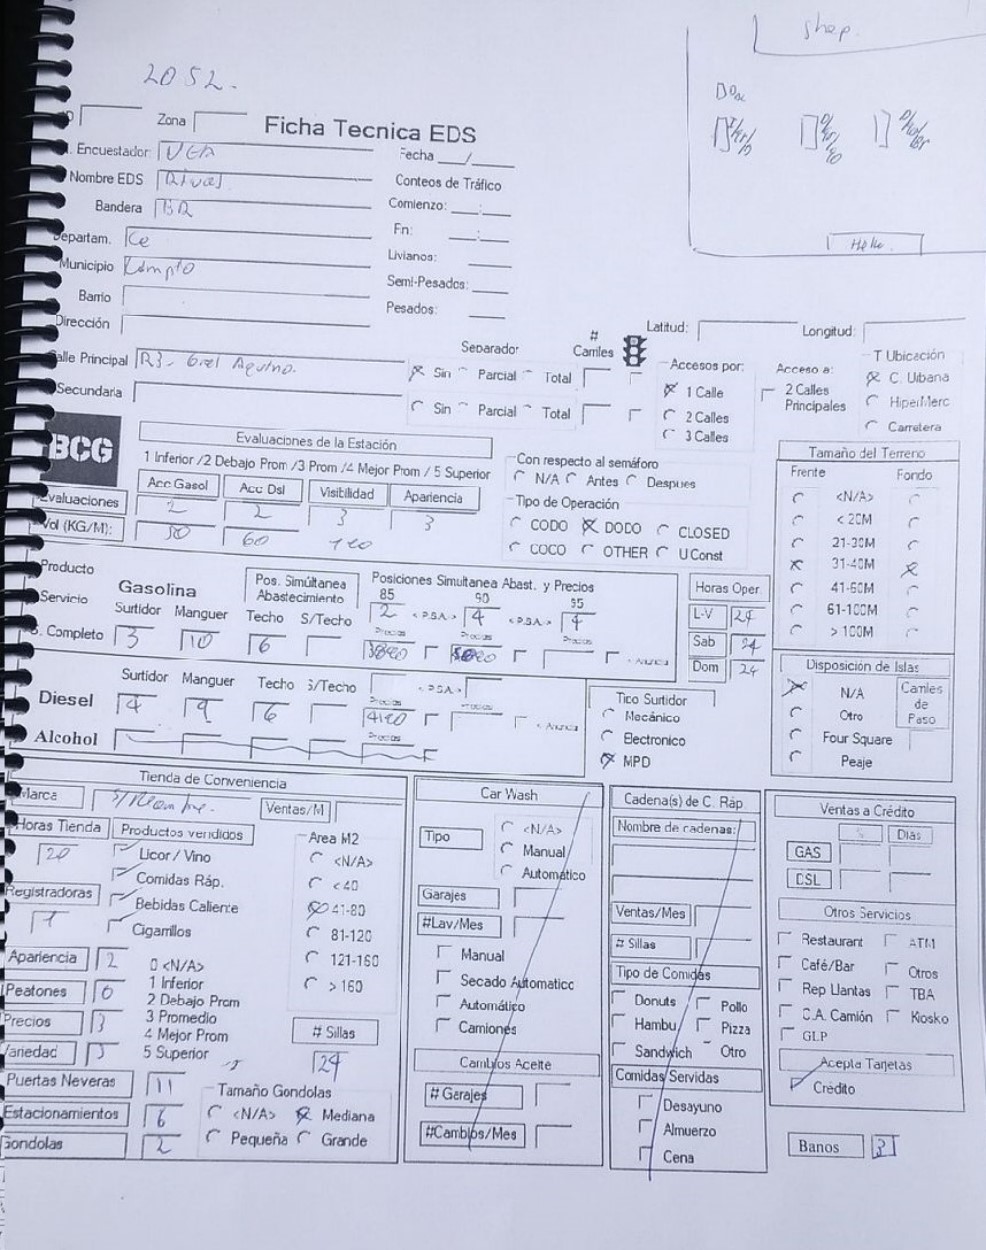 shop.
2052.
Zona
Ficha Tecnica EDS
Encuestador
Fecha __/__
Nombre EDS Rival
Conteos de Tráfico
Bandera BR
Comienzo: __:__
Departam. Ce
Fn: __:__
Municipio
Livianos:
Barrio
Semi-Pesados:
Dirección
Pesados:
Latitud: Longitud:
Calle Principal R3- Gral Aquino.
Separador # Carriles
Sin Parcial Total
Secundaria
Sin Parcial Total
Accesos por:
1 Calle
2 Calles
3 Calles
Acceso a:
2 Calles
Principales
T Ubicación
C. Urbana
HiperMerc
Carretera
BCG
Evaluaciones de la Estación
1 Inferior /2 Debajo Prom /3 Prom /4 Mejor Prom / 5 Superior
Acc Gasol Acc Dsl Visibilidad Apariencia
Evaluaciones 2 2 3 3
Vol (KG/M): 50 60
Con respecto al semáforo
N/A Antes Despues
Tipo de Operación
CODO DODO CLOSED
COCO OTHER U Const
Tamaño del Terreno
Frente Fondo
<N/A>
< 20M
21-30M
31-40M
41-60M
61-100M
> 100M
Producto
Servicio
Gasolina
Pos. Simúltanea
Abastecimiento
Posiciones Simultanea Abast. y Precios
85 90 95
2 < P.S.A. > 4 < P.S.A. > 4
Surtidor Manguer Techo S/Techo
S. Completo 3 10 6
Precios Precios Precios
Horas Oper.
L-V 24
Sab 24
Dom 24
Diesel
Surtidor Manguer Techo S/Techo
< P.S.A. >
4 9 6
Precios Precios
Alcohol
Precios
Tico Surtidor
Mecánico
Electronico
MPD
Disposición de Islas
N/A
Otro
Four Square
Peaje
Carriles
de
Paso
Tienda de Conveniencia
Marca
Ventas/M
Horas Tienda 20
Productos vendidos
Licor / Vino
Comidas Ráp.
Bebidas Caliente
Cigarrillos
Registradoras 1
Area M2
<N/A>
< 40
41-80
81-120
121-160
> 160
Apariencia 2
Peatones 0
Precios 3
Variedad 3
0 <N/A>
1 Inferior
2 Debajo Prom
3 Promedio
4 Mejor Prom
5 Superior
# Sillas
24
Puertas Neveras 11
Estacionamientos 6
Gondolas 2
Tamaño Gondolas
<N/A> Mediana
Pequeña Grande
Car Wash
Tipo
<N/A>
Manual
Automático
Garajes
#Lav/Mes
Manual
Secado Automatico
Automático
Camiones
Cambios Aceite
# Garajes
#Cambios/Mes
Cadena(s) de C. Ráp.
Nombre de cadenas:
Ventas/Mes
# Sillas
Tipo de Comidas
Donuts Pollo
Hambu Pizza
Sandwich Otro
Comidas Servidas
Desayuno
Almuerzo
Cena
Ventas a Crédito
% Dias
GAS
DSL
Otros Servicios
Restaurant ATM
Café/Bar Otros
Rep Llantas TBA
C.A. Camión Kosko
GLP
Acepta Tarjetas
Crédito
Banos 3